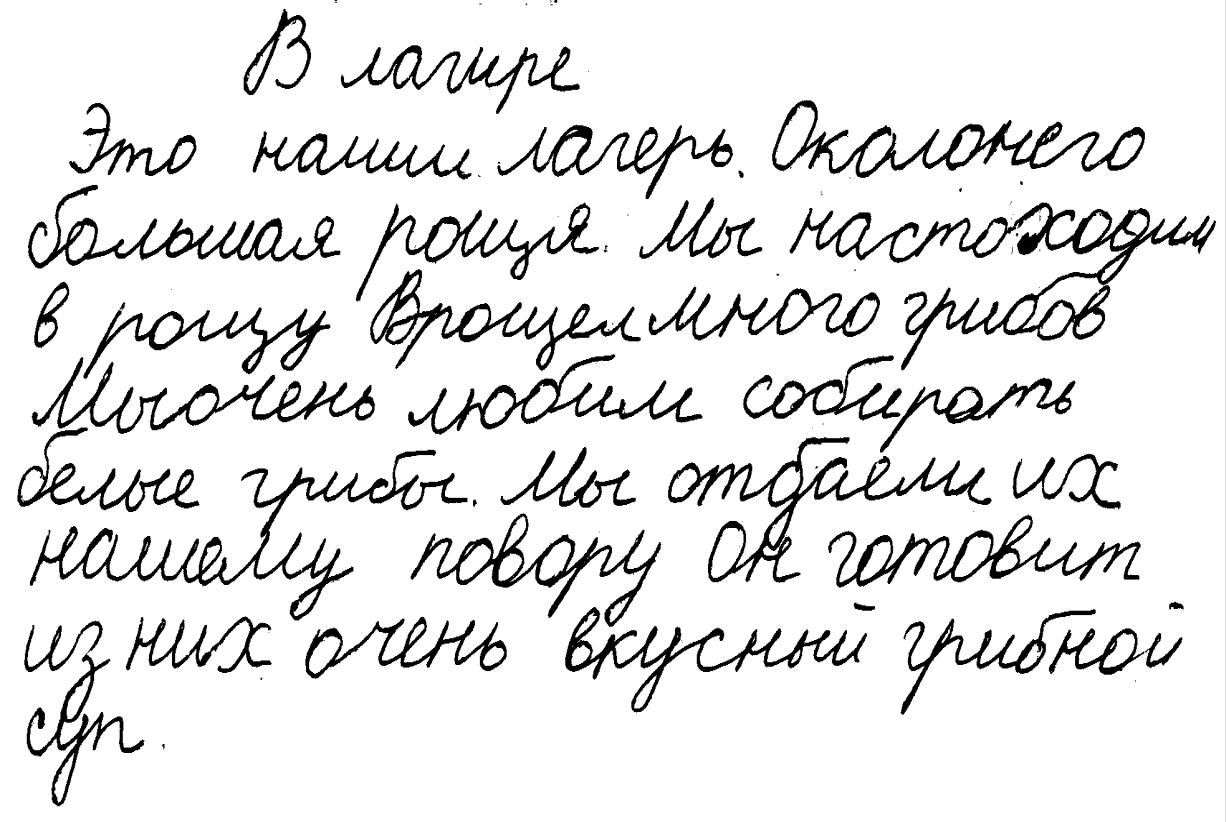 В лагире
Это наши лагерь. Околонего
большая рощя. Мы настоходим
в рощу Врощелмного грибов
Мыочень любим собирать
белые грибы. Мы отдаем их
нашему повору Он готовит
из них очень вкусный грибной
суп.